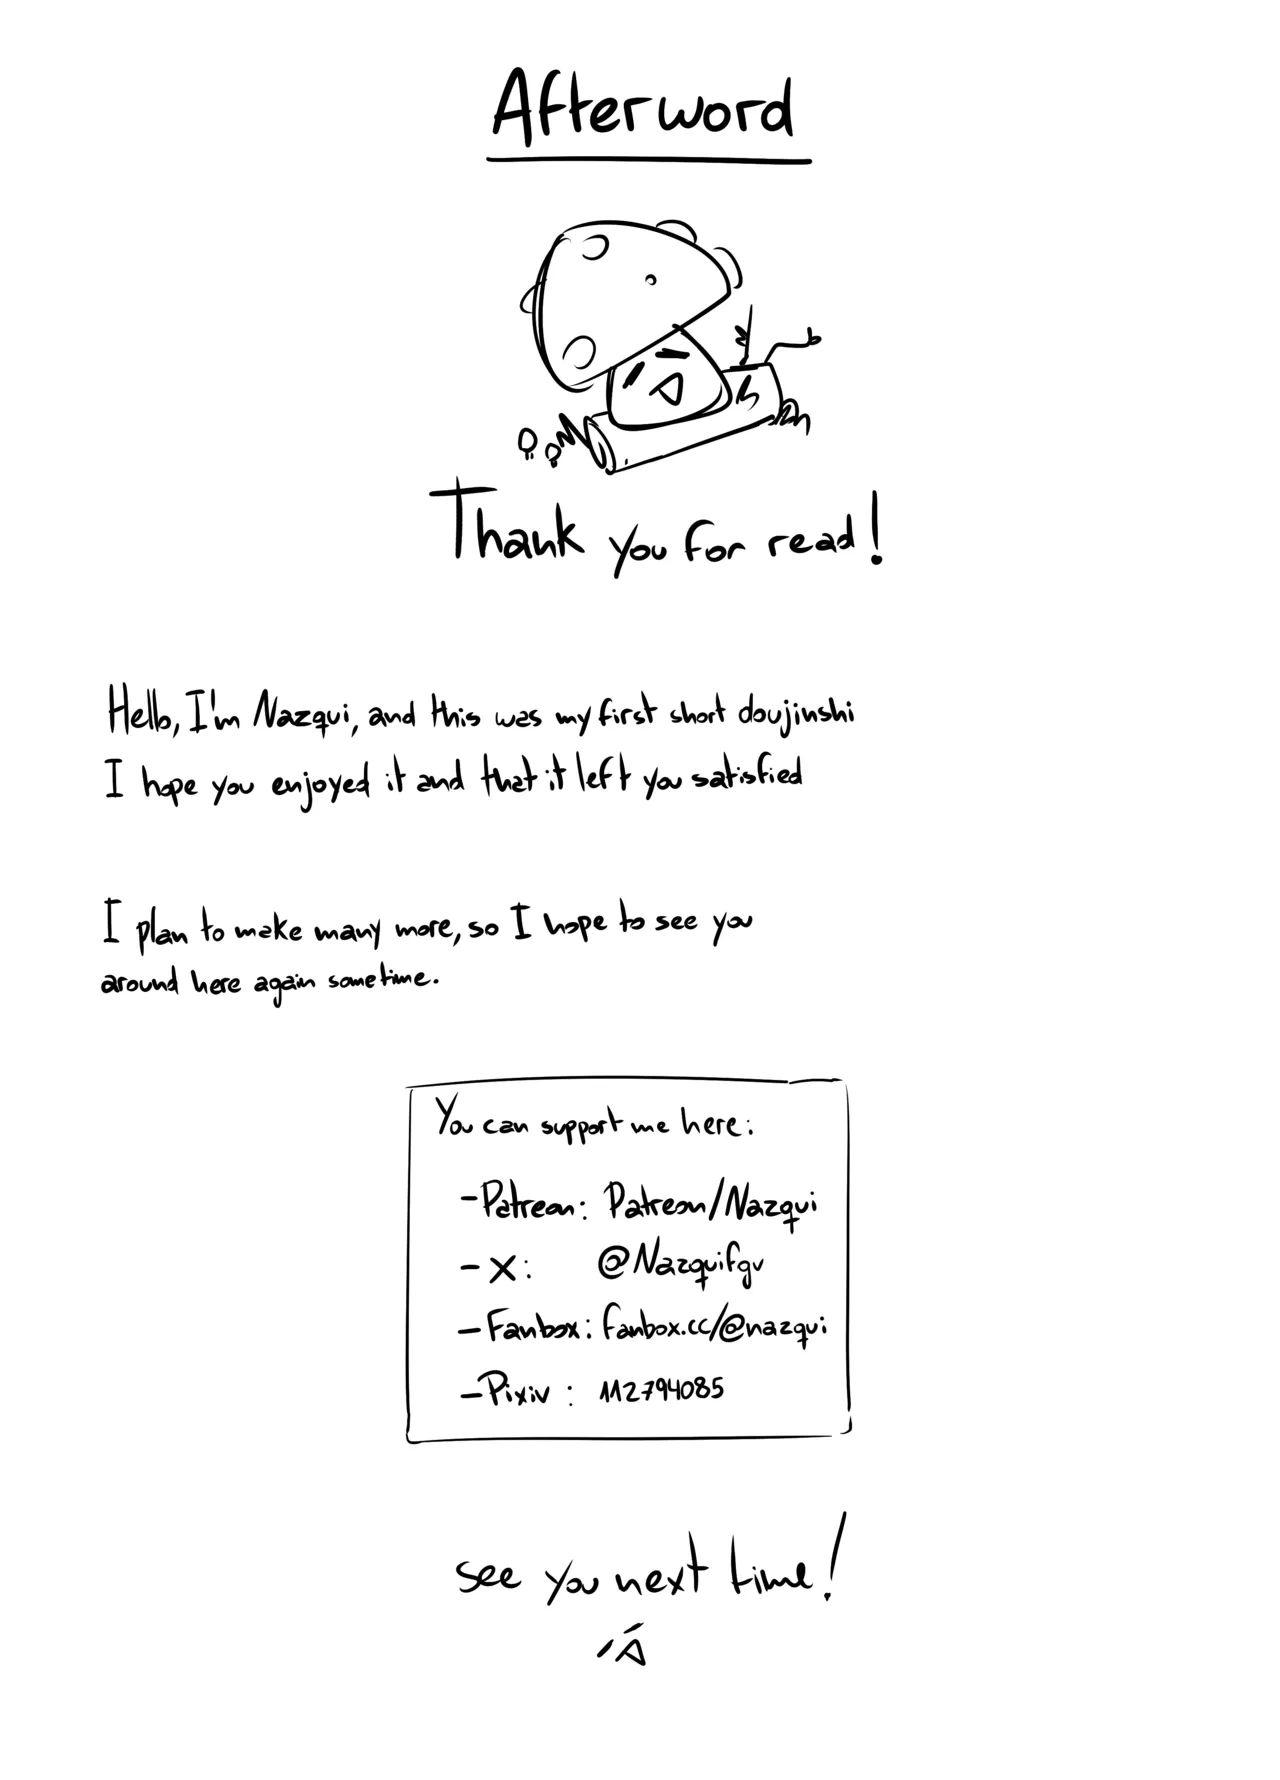 Afterword
Thank you for read!
Hello, I'm Nazqui, and this was my first short doujinshi
I hope you enjoyed it and that it left you satisfied
I plan to make many more, so I hope to see you
around here again sometime.
You can support me here:
-Patreon: Patreon/Nazqui
-X: @Nazquifgv
-Fanbox: fanbox.cc/@nazqui
-Pixiv: 112794085
see you next time!